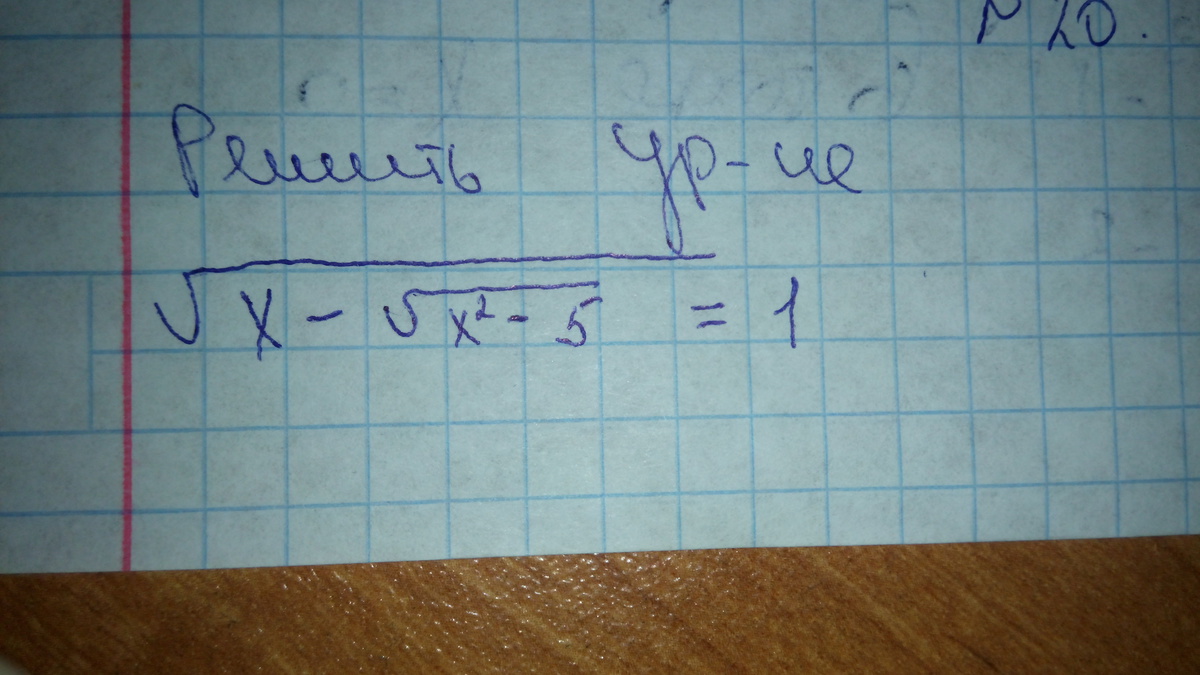 № 20.
Решить ур-ие
√(x - √(x² - 5)) = 1